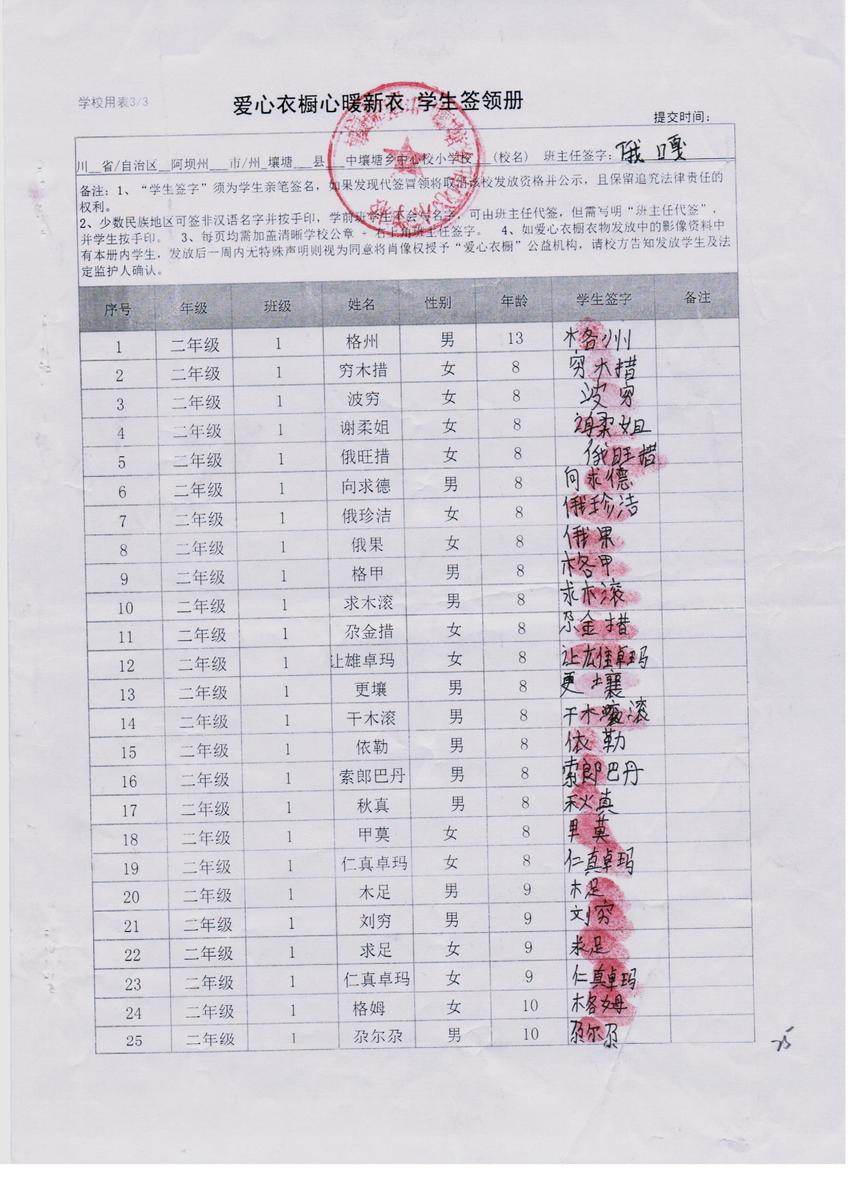 学校用表3/3
爱心衣橱心暖新衣 学生签领册
提交时间:
川__省/自治区__阿坝州___市/州_壤塘___县___中壤塘乡中心校小学校___(校名) 班主任签字: 俄嘎
备注: 1、“学生签字”须为学生亲笔签名, 如果发现代签冒领将取消该校发放资格并公示, 且保留追究法律责任的
权利。
2、少数民族地区可签非汉语名字并按手印, 学前班学生不会写名字, 可由班主任代签, 但需写明“班主任代签”,
并学生按手印。 3、每页均需加盖清晰学校公章 + 右上角班主任签字。 4、如爱心衣橱衣物发放中的影像资料中
有本册内学生, 发放后一周内无特殊声明则视为同意将肖像权授予“爱心衣橱”公益机构, 请校方告知发放学生及法
定监护人确认。
序号 年级 班级 姓名 性别 年龄 学生签字 备注
1 二年级 1 格州 男 13 格州
2 二年级 1 穷木措 女 8 穷木措
3 二年级 1 波穷 女 8 波穷
4 二年级 1 谢柔姐 女 8 谢柔姐
5 二年级 1 俄旺措 女 8 俄旺措
6 二年级 1 向求德 男 8 向求德
7 二年级 1 俄珍洁 女 8 俄珍洁
8 二年级 1 俄果 女 8 俄果
9 二年级 1 格甲 男 8 格甲
10 二年级 1 求木滚 男 8 求木滚
11 二年级 1 尕金措 女 8 尕金措
12 二年级 1 让雄卓玛 女 8 让雄卓玛
13 二年级 1 更壤 男 8 更壤
14 二年级 1 干木滚 男 8 干木滚
15 二年级 1 依勒 男 8 依勒
16 二年级 1 索郎巴丹 男 8 索郎巴丹
17 二年级 1 秋真 男 8 秋真
18 二年级 1 甲莫 女 8 甲莫
19 二年级 1 仁真卓玛 女 8 仁真卓玛
20 二年级 1 木足 男 9 木足
21 二年级 1 刘穷 男 9 刘穷
22 二年级 1 求足 女 9 求足
23 二年级 1 仁真卓玛 女 9 仁真卓玛
24 二年级 1 格姆 女 10 格姆
25 二年级 1 尕尔尕 男 10 尕尔尕
25